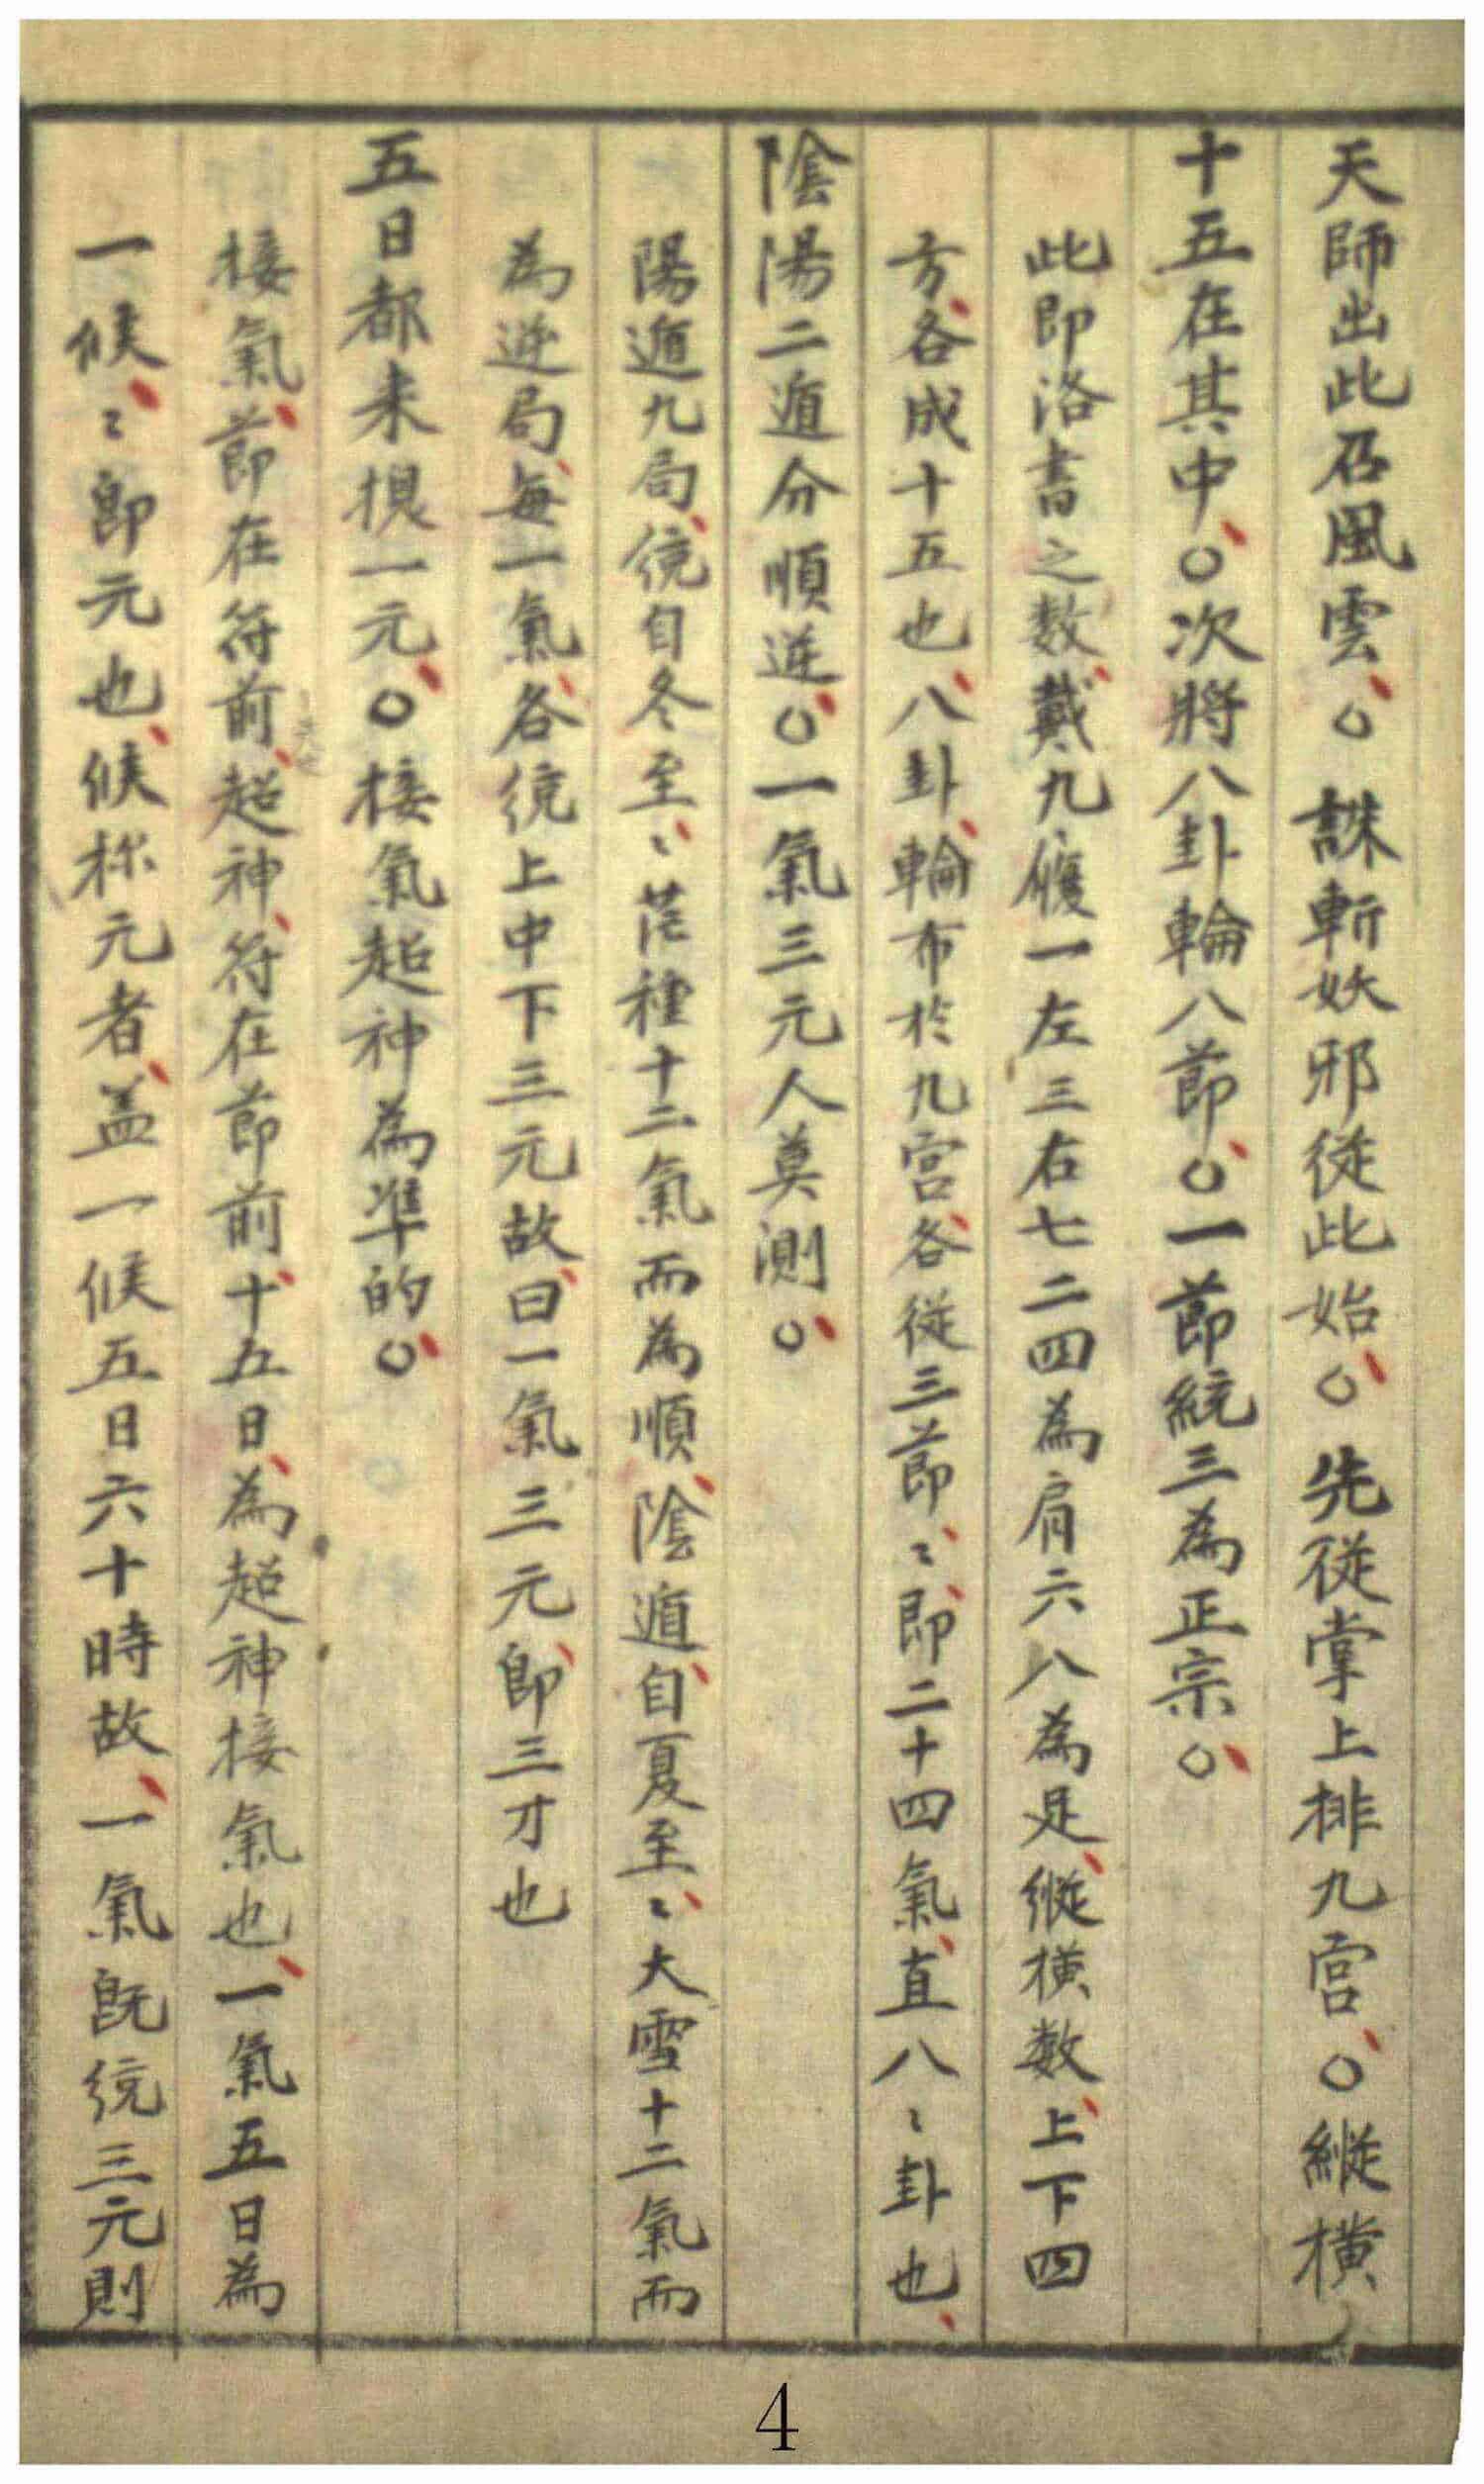 天師出此召風雲、○誅斬妖邪從此始、○先從掌上排九宮、○縱橫
十五在其中、○次將八卦輪八節、○一節統三為正宗、○
此即洛書之数、戴九履一左三右七二四為肩六八為足、縱橫数、上下四
方、各成十五也、八卦、輪布於九宮、各從三節、〻、即二十四氣、直八〻卦也、
陰陽二遁分順逆、○一氣三元人莫測、○
陽遁九局、統自冬至、〻芒種十二氣而為順、陰遁、自夏至〻、大雪十二氣而
為逆局、每一氣、各統上中下三元故、曰一氣三元、即三才也
五日都来換一元、○接氣超神為準的、○
接氣、節在符前、超神、符在節前、十五日、為超神接氣也、一氣五日為
一候、〻即元也、候称元者、盖一候五日六十時故、一氣既統三元則
4